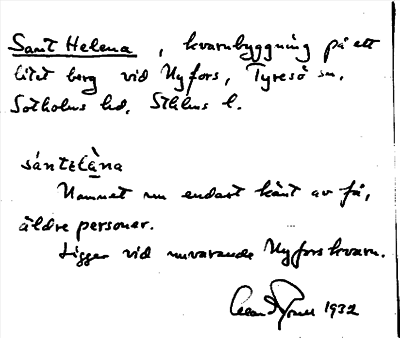 Sant Helena, kvarnbyggning på ett
litet berg vid Nyfors, Tyresö sn.
Sotholms hd, Sthlms l.
sántɛlὰna
Namnet nu endast känt av få,
äldre personer.
Ligger vid nuvarande Nyfors kvarn.
1932